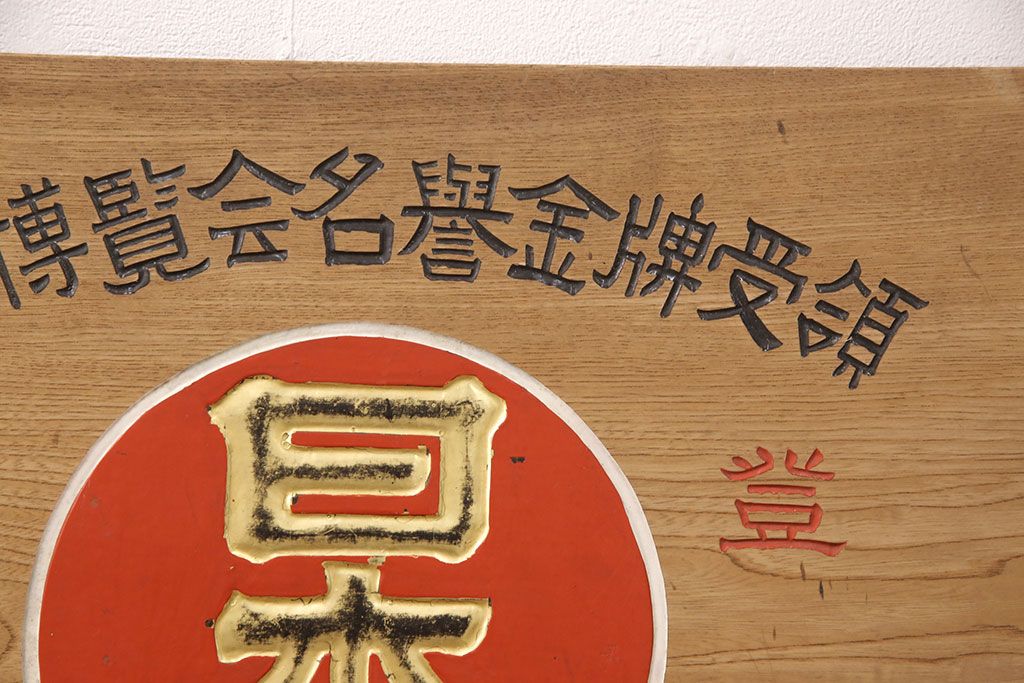 博覧会名誉金牌受領
登
日本